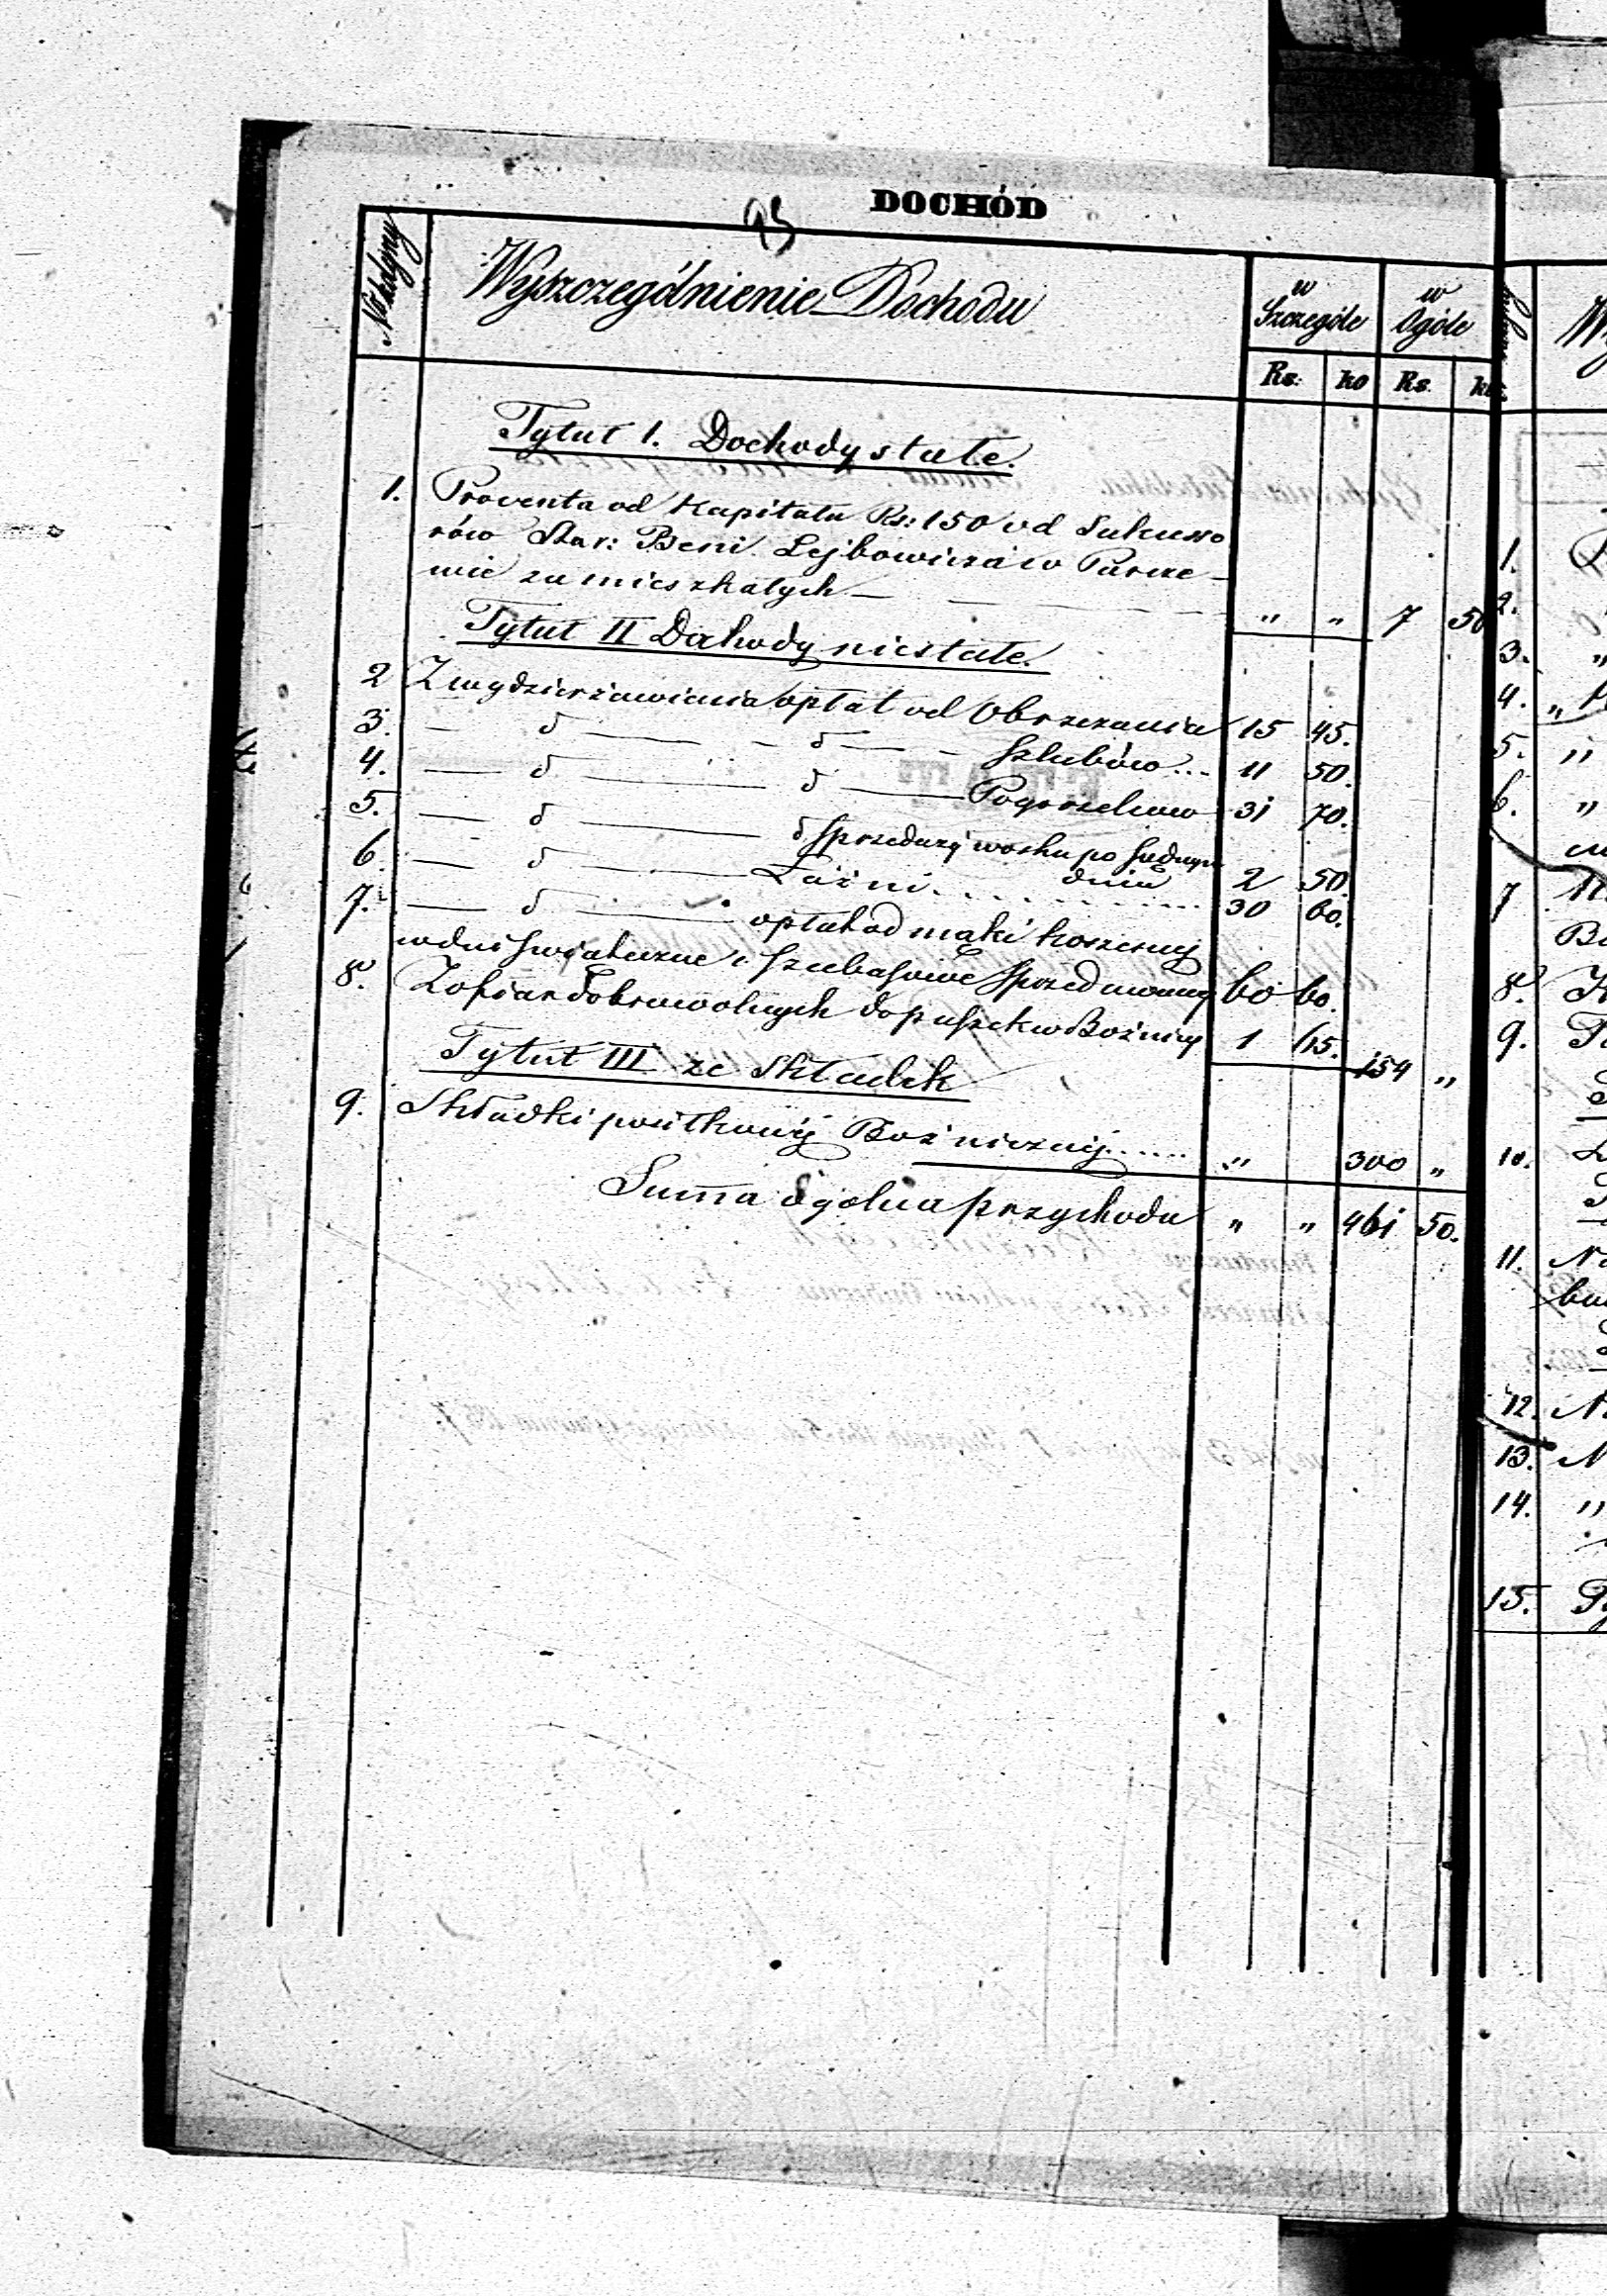 DOCHÓD
95
Wyszczególnienie Dochodu
w Szczególe
w Ogóle
Rs: ko Rs. ko.
Tytuł 1. Dochody stałe.
1. Proventa od Kapitału Rs: 150 od Sukcesso
rów Star: Beni Lejbowicza w Parcze-
wie zamieszkałych — — — " " 7 50
Tytuł II Dochody niestałe.
2 Z wydzierżawienia opłat od Obrzezania 15 45.
3. — d — — d — Szlubów... 11 50.
4. — d — d — Pogrzebowo 31 70.
5. — d — d sprzedarzy wosku po Sądnym
dniu 2 50.
6. — d — Łaźni . . . . . . . . . 30 60.
7. — d — opłat od mąki koszernej
w dni Swiąteczne i Szabasowe sprzedawanej 60 60.
8. Z ofiar dobrowolnych do puszek w Bożnicy 1 65.
154 "
Tytuł III ze Składek
9. Składki posiłkowéj Bożnicznéj...... " 300 "
Suma ogolna przychodu " " 461 50.
1.
2.
3. "
4. "
5. "
6. "
7
8.
9.
10.
11.
12.
13.
14. "
15.